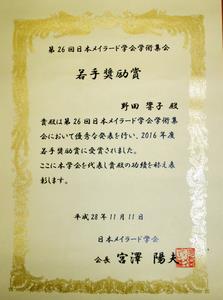 第26回日本メイラード学会学術集会
若手奨励賞
野田 響子 殿
貴殿は第26回日本メイラード学会学術集
会において優秀な発表を行い、2016年度
若手奨励賞に受賞されました。
ここに本学会を代表し貴殿の功績を称え表
彰します。
平成28年11月11日
日本メイラード学会
会長 宮澤 陽夫